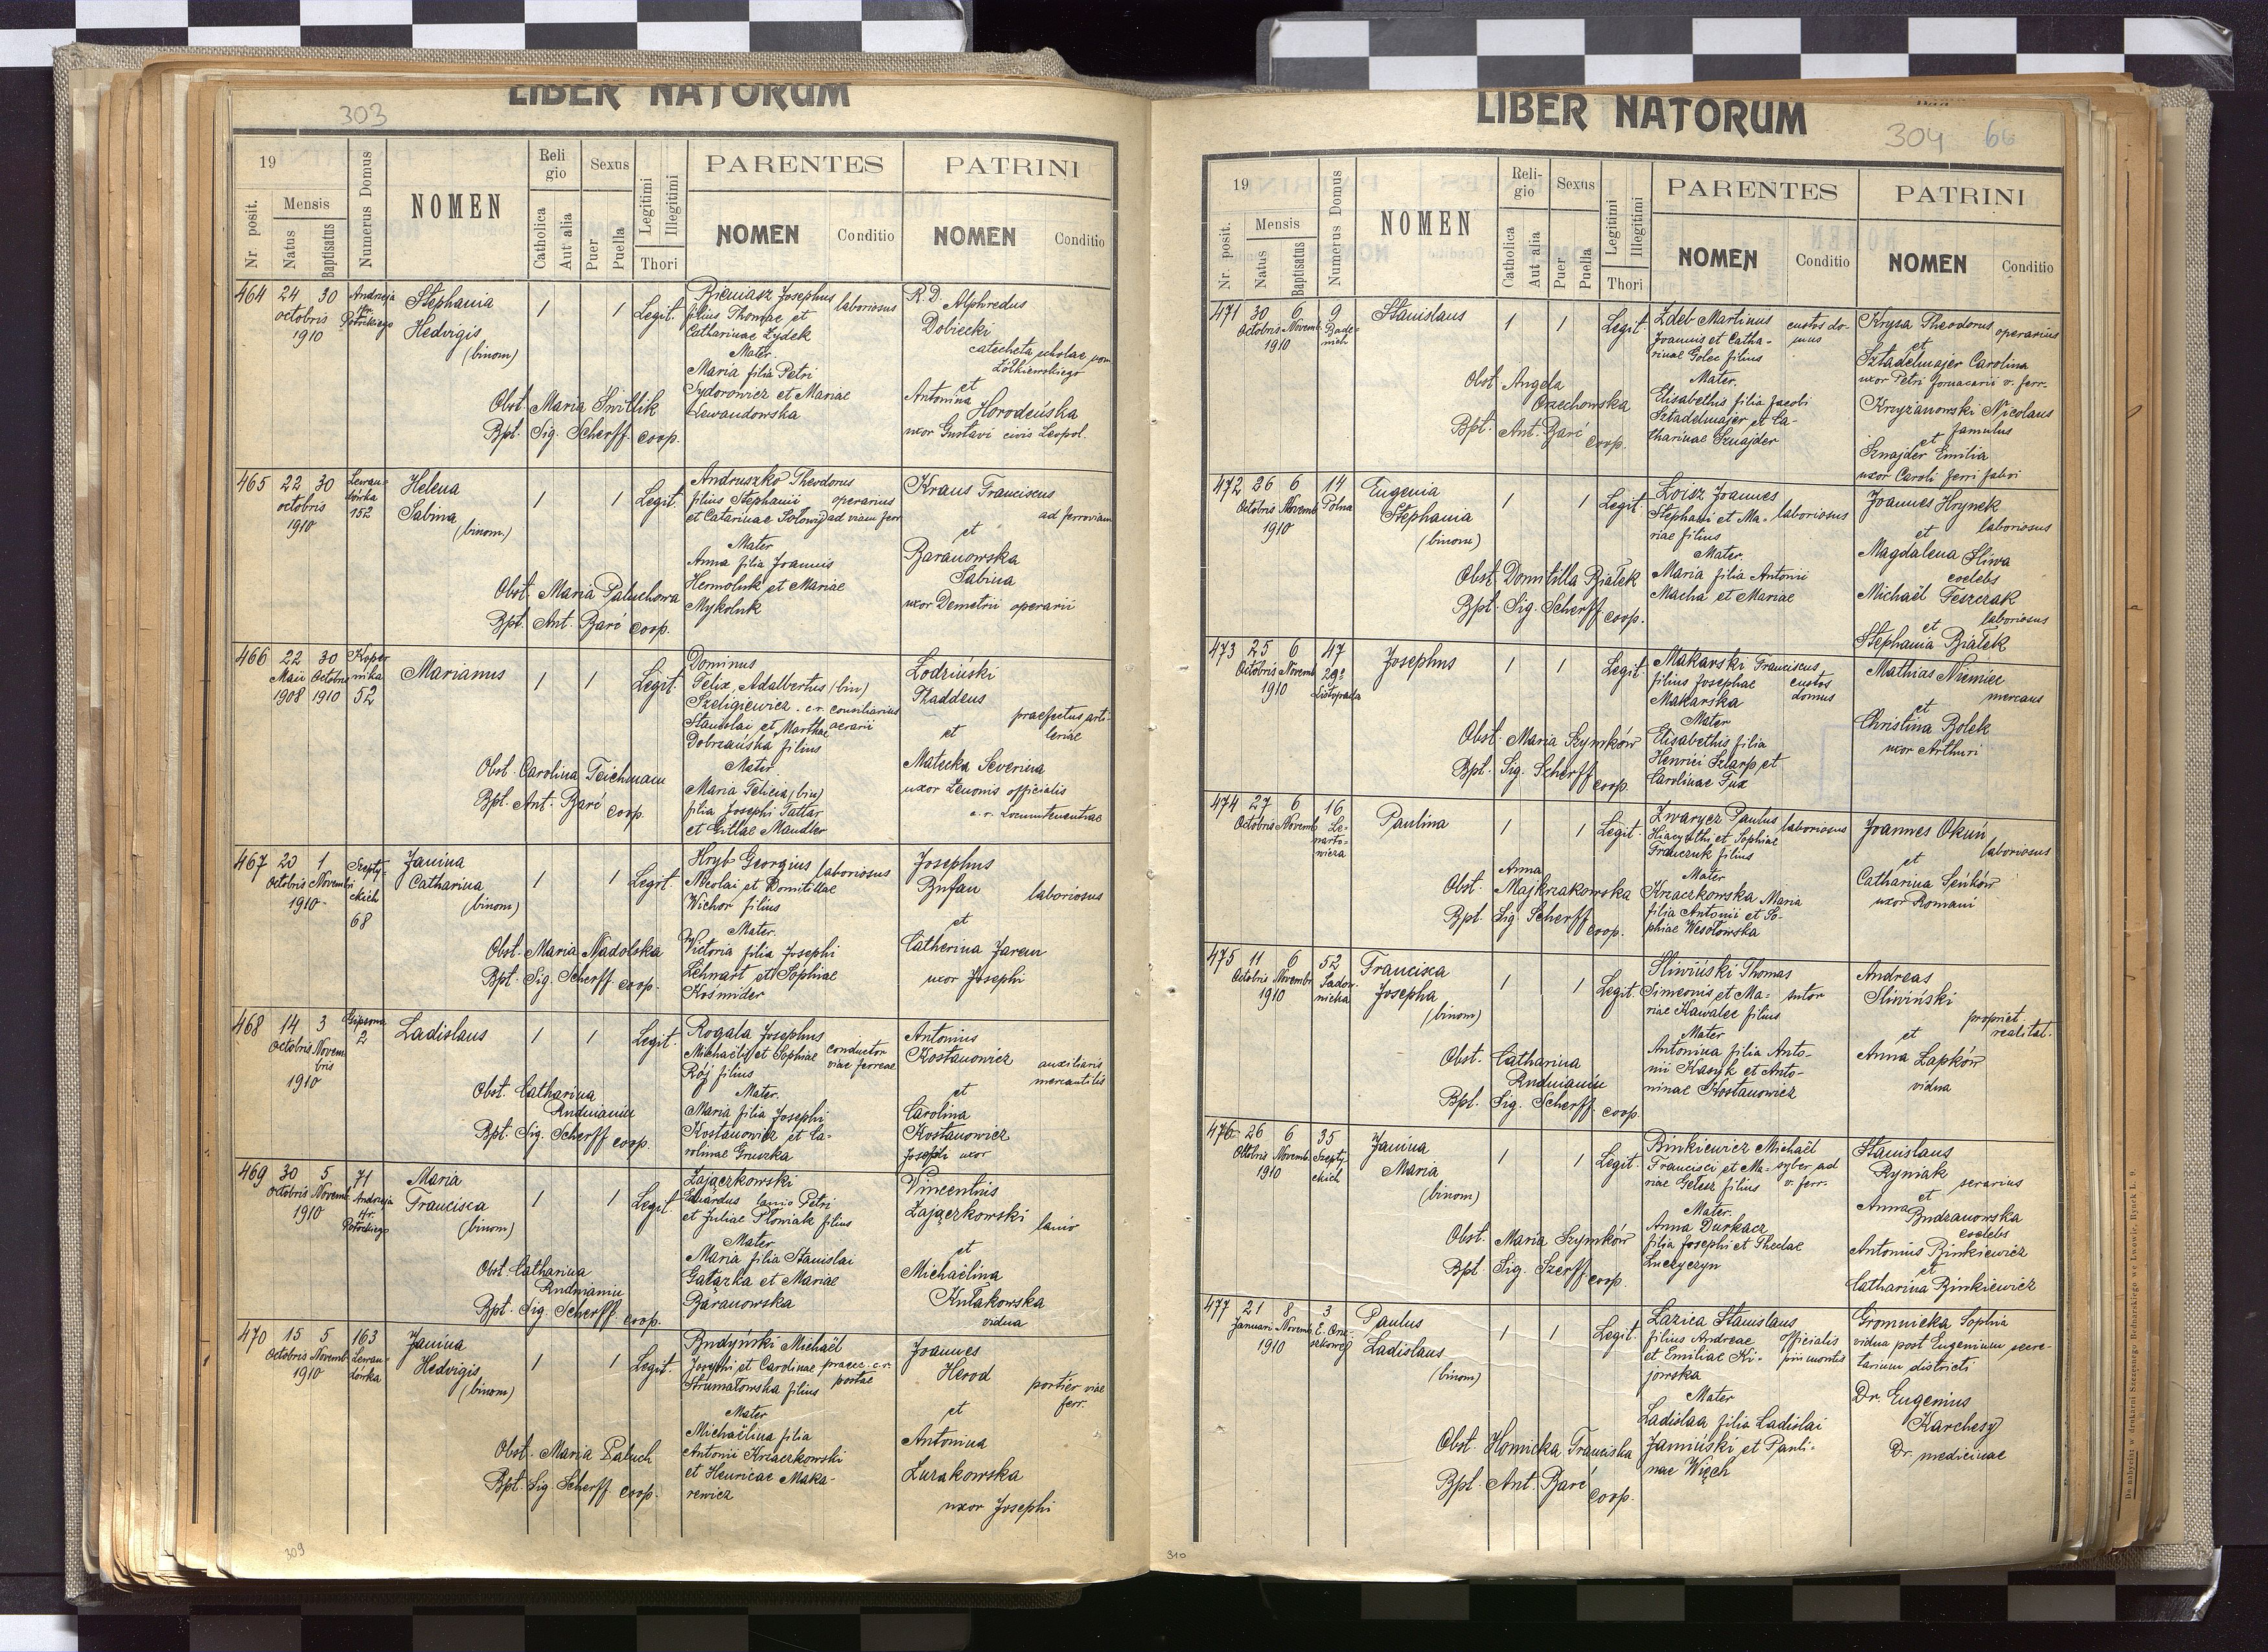 LIBER NATORUM
303
19
Mensis
Nr. posit.
Natus
Baptisatus
Numerus Domus
NOMEN
Religio
Catholica
Aut alia
Sexus
Puer
Puella
Legitimi
Illegitimi
Thori
PARENTES
NOMEN
Conditio
PATRINI
NOMEN
Conditio
464 24 30
octobris
1910
Stephania
Hedvigis
(binom)
1 1 Legit.
Bieniasz Josephus laboriosus
filius Thomae et
Catharinae Zydek
Mater.
Maria filia Petri
Sydorowicz et Mariae
Lewandowska
R. D. Alphredus
Dobiecki
catecheta scholae nom
Żółkiewskiego
et
Antonina Horodeńska
uxor Gustavi civis Leopol.
Obst. Maria Świtlik
Bpt. Sig. Scherff coop.
465 22 30
octobris
1910
Lewandówka
152
Helena
Sabina
(binom)
1 1 Legit.
Andruszko Theodorus
filius Stephanii operarius
et Catarinae ad viam ferr
Mater
Anna filia Joannis
Hermoluk et Mariae
Mykoluk
Kraus Franciscus
ad ferroviam
et
Baranowska
Sabina
uxor Demetrii operarii
Obst. Maria Paluchowa
Bpt. Ant. Barć coop.
466 22 30
Maii Octobris
1908 1910
Kopernika
52
Marianus
1 1 Legit.
Dominus
Felix, Adalbertus (bin)
Szeligiewicz c. r. consiliarius
Stanislai et Marthae aerarii
Dobrzańska filius
Mater.
Maria Felicia (bin)
filia Josephi Tattar
et Gitlae Mandler
Łodziński
Thaddeus
praefectus artileriae
et
Matecka Severina
uxor Zenonis officialis
c. r. Locumtenentiae
Obst. Carolina Teichmann
Bpt. Ant. Barć coop.
467 20 1
Octobris Novembri
1910
Szeptyckich
68
Janina
Catharina
(binom)
1 1 Legit.
Hryb Georgius laboriosus
Nicolai et Domitillae
Wichor filius
Mater.
Victoria filia Josephi
Lehnart et Sophiae
Kośmider
Josephus
Bufan laboriosus
et
Catherina Jarem
uxor Josephi
Obst. Maria Nadolska
Bpt. Sig. Scherff coop.
468 14 3
Octobris Novembris
1910
Gipsowa
2
Ladislaus
1 1 Legit.
Rogala Josephus
Michaëlis et Sophiae conductor
Rój filius viae ferreae
Mater.
Maria filia Josephi
Kostanowicz et Carolinae Gruszka
Antonius
Kostanowicz auxiliaris
mercantilis
et
Carolina
Kostanowicz
Josephi uxor
Obst. Catharina
Rudnianin
Bpt. Sig. Scherff coop.
469 30 5 71
Octobris Novemb.
1910
Andrzeja
Hr.
Potockiego
Maria
Francisca
(binom)
1 1 Legit.
Zajączkowski
Eduardus lanio Petri
et Juliae Płoniak filius
Mater
Maria filia Stanislai
Gatazka et Mariae
Baranowska
Vincentius
Zajączkowski
lanio
et
Michaëlina
Kułakowska
vidua
Obst. Catharina
Rudnianin
Bpt. Sig. Scherff coop.
470 15 5 163
Octobris Novemb.
1910
Lewandówka
Janina
Hedvigis
(binom)
1 1 Legit.
Budyński Michaël
Josephi et Carolinae praec. c. r.
Strumatowska filius portae
Mater
Michaëlina filia
Antonii Krzaczkowski
et Henricae Makarewicz
Joannes
Herod
portier viae
ferr.
et
Antonina
Żurakowska
uxor Josephi
Obst. Maria Paluch
Bpt. Sig. Scherff coop.
309
LIBER NATORUM
304 66
19
Mensis
Nr. posit.
Natus
Baptisatus
Numerus Domus
NOMEN
Religio
Catholica
Aut alia
Sexus
Puer
Puella
Legitimi
Illegitimi
Thori
PARENTES
NOMEN
Conditio
PATRINI
NOMEN
Conditio
471 30 6 9
Octobris Novemb.
1910
Stanislaus
1 1 Legit.
Zdeb Martinus custos domus
Joannis et Catharinae Golec filius
Mater.
Elisabethis filia Jacobi
Sztadelmajer et Catharinae Sznajder
Krysa Theodorus operarius
et
Sztadelmajer Carolina
uxor Petri fornacarii v. ferr.
Krzyżanowski Nicolaus
famulus
et
Sznajder Emilia
uxor Caroli ferri fabri
Obst. Angela
Orzechowska
Bpt. Ant. Barć coop.
472 26 6 14
Octobris Novemb
1910
Polna
Eugenia
Stephania
(binom)
1 1 Legit.
Łoisz Joannes
Stephani et Ma- laboriosus
riae filius
Mater.
Maria filia Antonii
Macha et Mariae
Joannes Hrynek
laboriosus
et
Magdalena Śliwa
coelebs
Michaël Feszczak
laboriosus
et
Stephania Białek
Obst. Domitilla Białek
Bpt. Sig. Scherff coop.
473 25 6 47
Octobris Novemb
1910
29go
Listopada
Josephus
1 1 Legit.
Makarski Franciscus
filius Josephae custos
Makarska domus
Mater
Elisabethis filia
Henrici Szlarp et
Carolinae Fux
Mathias Niemiec
mercans
et
Christina Bolek
uxor Arthuri
Obst. Maria Szymków
Bpt. Sig. Scherff coop.
474 27 6 16
Octobris Novemb
1910
Lenartowicza
Paulina
1 1 Legit.
Zwarycz Paulus laboriosus
Hiacynthi et Sophiae
Franczuk filius
Mater
Krzaczkowska Maria
filia Antonii et Sophiae Wesołowska
Joannes Okuń
laboriosus
et
Catharina Seńków
uxor Romani
Obst. Anna
Majkrzakowska
Bpt. Sig. Scherff coop.
475 11 6 52
Octobris Novembr
1910
Sadownicka
Francisca
Josepha
(binom)
1 1 Legit.
Śliwiński Thomas
Simeonis et Ma- sutor
riae Kawalec filius
Mater
Antonina filia Antonii Kasyk et Antoninae Kostanowicz
Andreas
Śliwiński
propriet.
realitat.
et
Anna Łapków
vidua
Obst. Catharina
Rudnianin
Bpt. Sig. Scherff coop.
476 26 6 35
Octobris Novemb.
1910
Szeptyckich
Janina
Maria
(binom)
1 1 Legit.
Binkiewicz Michaël
Francisci et Ma- syber ad
riae Gelesz filius v. ferr.
Mater.
Anna Durkacz
filia Josephi et Theclae
Luczyczyn
Stanislaus
Ryniak
serarius
et
Anna Budzanowska
coelebs
Antonius Binkiewicz
et
Catharina Binkiewicz
Obst. Maria Szymków
Bpt. Sig. Szerff coop.
477 21 8 3
Januari Novemb.
1910
E. Orzeszkowej
Paulus
Ladislaus
(binom)
1 1 Legit.
Lazica Stanislaus
filius Andreae officialis
et Emiliae Ki- pii montis
jowska
Mater
Ladislaa filia Ladislai
Jamiński et Paulinae Więch
Gromnicka Sophia
vidua post Eugenium secretarium districti
Dr. Eugenius
Karchesy
Dr. medicinae
Obst. Homicka Franciska
Bpt. Ant. Barć coop.
310
Do nabycia w drukarni Szczęsnego Bednarskiego we Lwowie, Rynek L. 9.